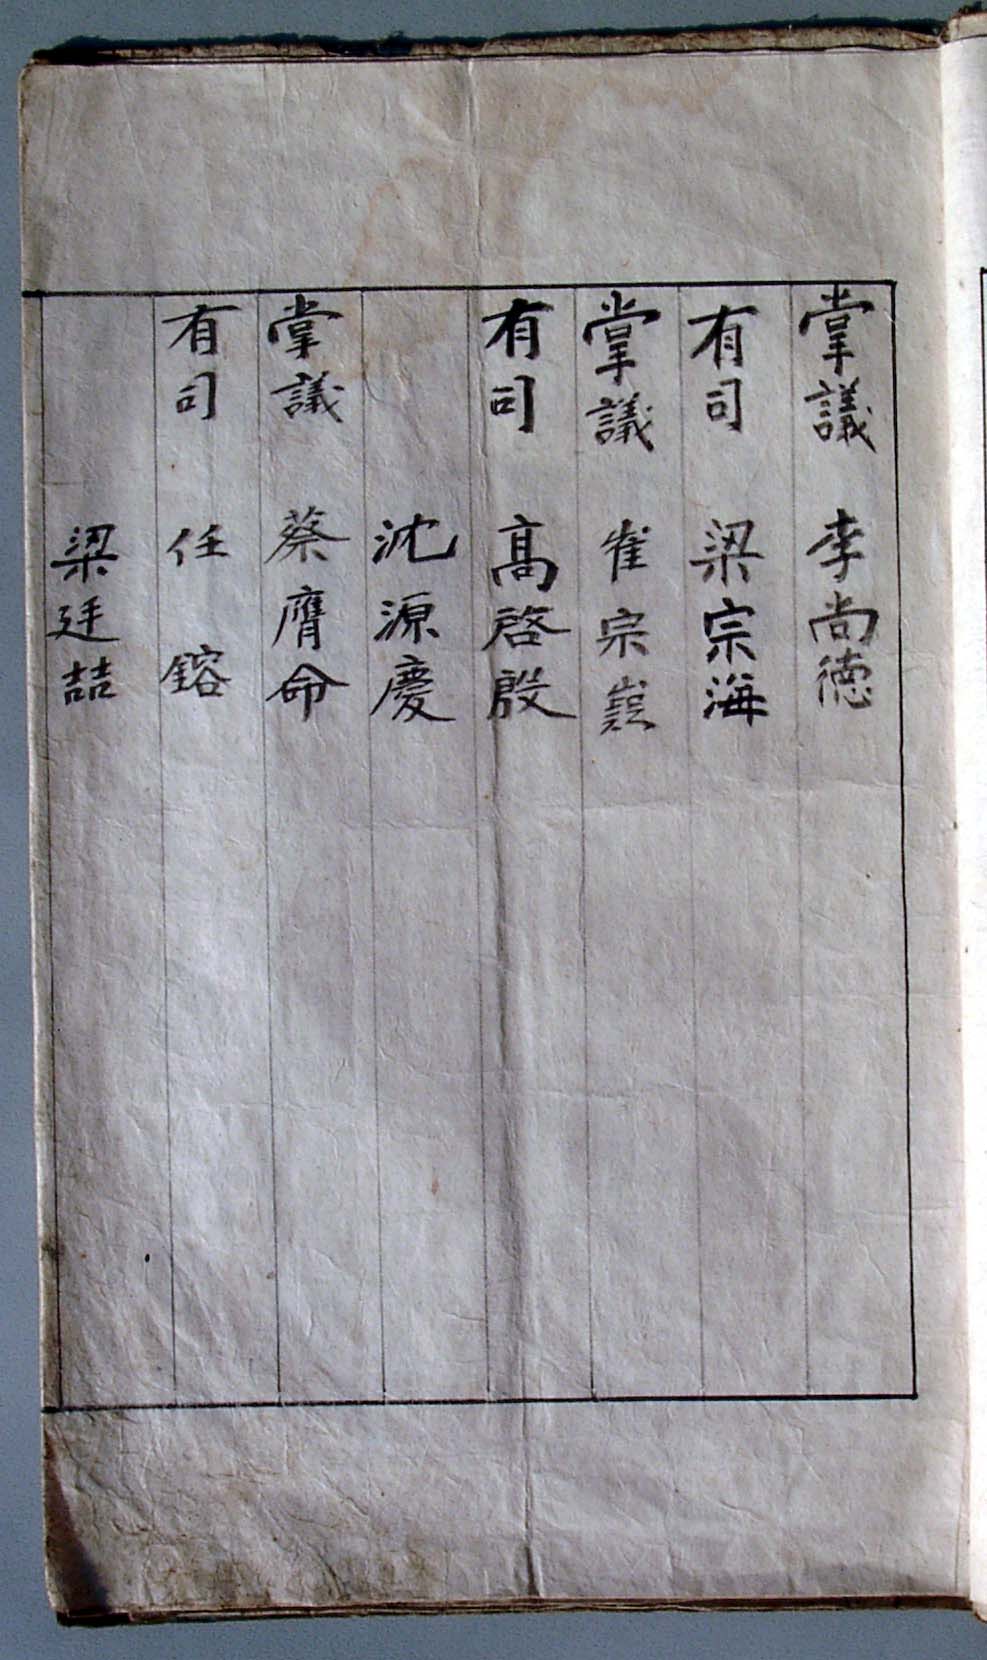 掌議 李尚德
有司 梁宗海
掌議 崔宗嶷
有司 高啓殷
沈源慶
掌議 蔡膺命
有司 任鎔
梁廷喆